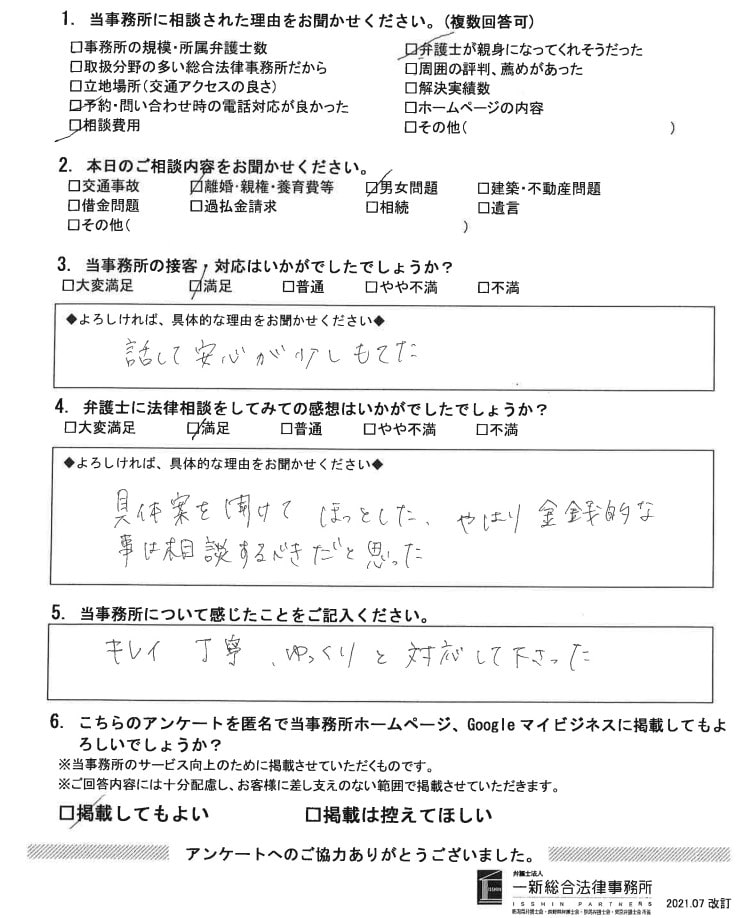 1. 当事務所に相談された理由をお聞かせください。（複数回答可）
□事務所の規模・所属弁護士数 □弁護士が親身になってくれそうだった
□取扱分野の多い総合法律事務所だから □周囲の評判、薦めがあった
□立地場所（交通アクセスの良さ） □解決実績数
□予約・問い合わせ時の電話対応が良かった □ホームページの内容
□相談費用 □その他（ ）
2. 本日のご相談内容をお聞かせください。
□交通事故 □離婚・親権・養育費等 □男女問題 □建築・不動産問題
□借金問題 □過払金請求 □相続 □遺言
□その他（ ）
3. 当事務所の接客・対応はいかがでしたでしょうか？
□大変満足 □満足 □普通 □やや不満 □不満
◆よろしければ、具体的な理由をお聞かせください◆
話して安心が少しもてた
4. 弁護士に法律相談をしてみての感想はいかがでしたでしょうか？
□大変満足 □満足 □普通 □やや不満 □不満
◆よろしければ、具体的な理由をお聞かせください◆
具体案を聞けて ほっとした、やはり金銭的な
事は相談するべきだと思った
5. 当事務所について感じたことをご記入ください。
キレイ 丁寧、ゆっくりと対応して下さった
6. こちらのアンケートを匿名で当事務所ホームページ、Googleマイビジネスに掲載してもよ
ろしいでしょうか？
※当事務所のサービス向上のために掲載させていただくものです。
※ご回答内容には十分配慮し、お客様に差し支えのない範囲で掲載させていただきます。
□掲載してもよい □掲載は控えてほしい
アンケートへのご協力ありがとうございました。
弁護士法人
一新総合法律事務所
ISSHIN PARTNERS
2021.07 改訂